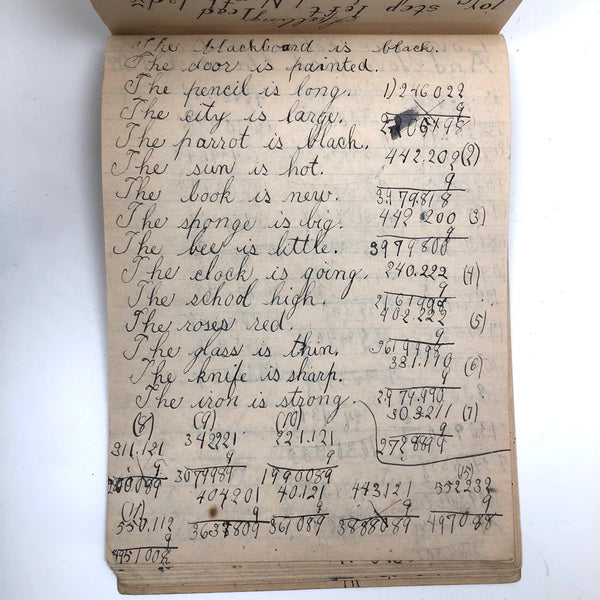 The blackboard is black.
The door is painted.
The pencil is long.
The city is large.
The parrot is black.
The sun is hot.
The book is new.
The sponge is big.
The bee is little.
The clock is going.
The school high.
The roses red.
The glass is thin.
The knife is sharp.
The iron is strong.
1) 246022
9
442,202 (2)
9
3979.818
442200 (3)
9
3979800
240.222 (4)
9
2161998
402.222 (5)
9
3619998
331.110 (6)
9
2979.990
303211 (7)
9
(8) (9) (10)
311.121 342221 221.121
9 9 9
3079989 1990089
404201 40.121 443121 552.232
9 9 9 9
3637809 361089 3888089
(11)
550.112
9